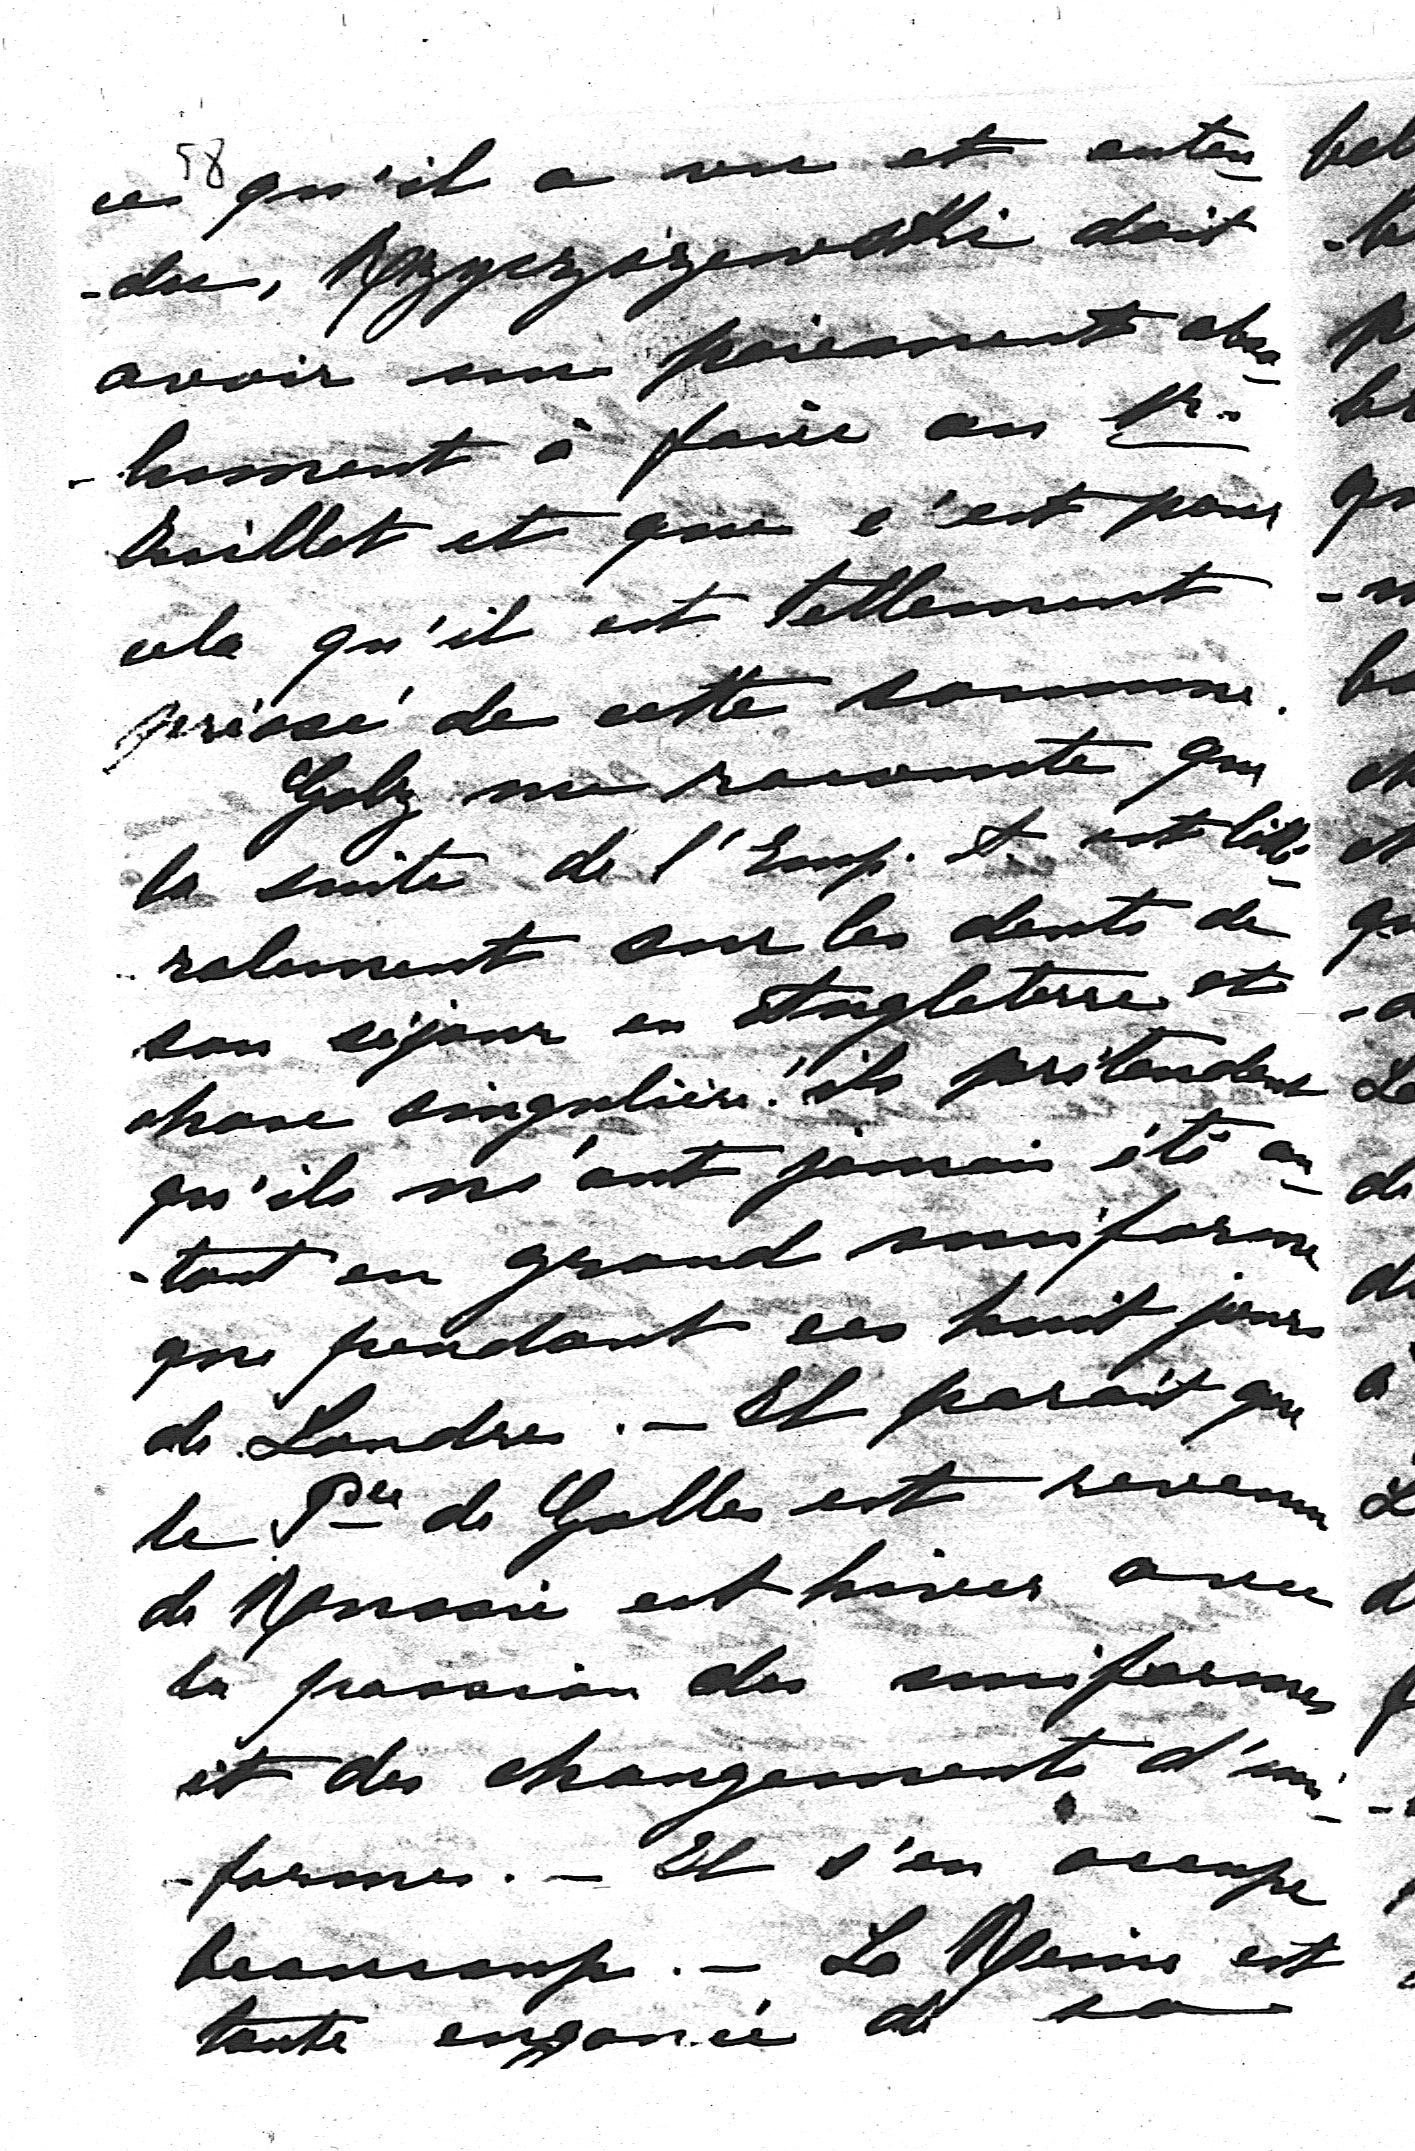 58
ce qu'il a vu et enten
-due, Rzyczyszewski doit
avoir une paiement abso
-lument à faire au 1er
Juillet et que c'est pour
cela qu'il est tellement
préssé de cette somme.
Golz me raconte que
la suite de l'Emp. A. est litté
-ralement sur les dents de
son séjour en Angleterre et
chose singulière! ils prétendent
qu'ils n'ont jamais été au
-tant en grand uniforme
que pendant ces huit jours
de Londres. — Il parait que
le Pce de Galles est revenu
de Roussie cet hiver avec
la passion des uniformes
et des changements d'uni
-formes. — Il s'en occupe
beaucoup. — La Reine est
toute engouée de sa